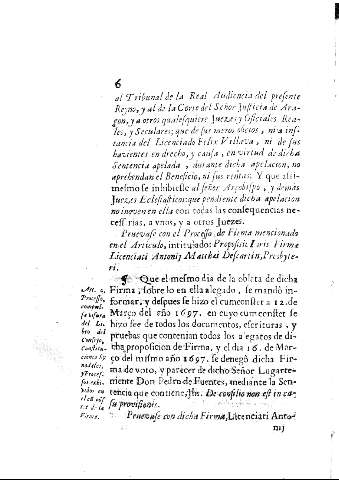 6
al Tribunal de la Real Audiencia del presente
Reyno, y al de la Corte del Señor Justicia de Ara-
gon, y a otros qualesquiere Juezes y Oficiales, Rea-
les, y Seculares; que de sus meros oficios, ni a ins-
tancia del Licenciado Felix Villava, ni de sus
havientes en drecho, y causa, en virtud de dicha
Sentencia apelada, durante dicha apelacion, no
aprehendan el Beneficio, ni sus rentas: Y que assi-
mesmo se inhibiesse al señor Arçobispo, y demàs
Juezes Eclesiasticos: que pendiente dicha apelacion
no inoven en ella con todas las consequencias ne-
cessarias, a vnos, y a otros Juezes.
Pruevase con el Processo, de Firma mencionado
en el Articulo, intitulado: Propositio Iuris Firmæ
Licenciati Antonij Matthei Descartin, Presbyte-
ri.
¶ Que el mesmo dia de la oblata de dicha
Firma, sobre lo en ella alegado, se mandò in-
formar, y despues se hizo el cumconstet a 12. de
Março del año 1697. en cuyo cumconstet se
hizo fee de todos los documentos, escrituras, y
pruebas que contenian todos los alegatos de di-
cha proposicion de Firma, y el dia 16. de Mar-
ço del mismo año 1697. se denegò dicha Fir-
ma de voto, y parecer de dicho Señor Lugarte-
niente Don Pedro de Fuentes, mediante la Sen-
tencia que contiene, In. De consilio non est in ca-
su provisionis.
Pruevase con dicha Firma, Licenciati Anto-
nij
Art. 9.
Processo,
del Li-
bro del
Consejo,